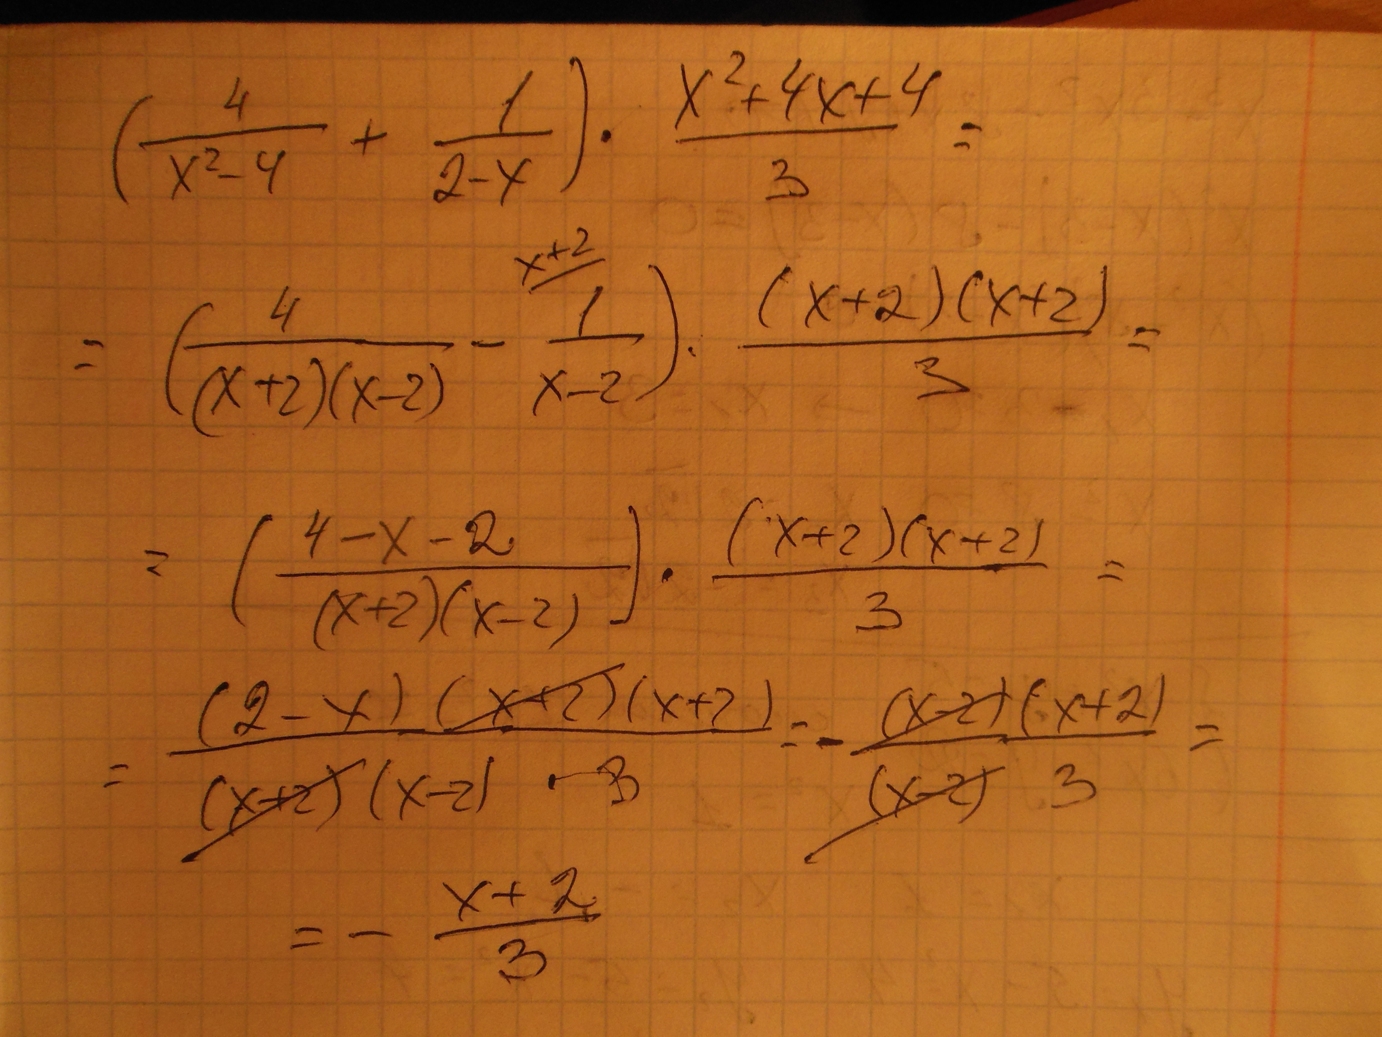 (4/(x²-4) + 1/(2-x)) · (x²+4x+4)/3 =
= (4/((x+2)(x-2)) - 1/(x-2) x+2) · ((x+2)(x+2))/3 =
= ((4-x-2)/((x+2)(x-2))) · ((x+2)(x+2))/3 =
= ((2-x)(x+2)(x+2))/((x+2)(x-2) · 3) = - ((x-2)(x+2))/((x-2) 3) =
= - (x+2)/3